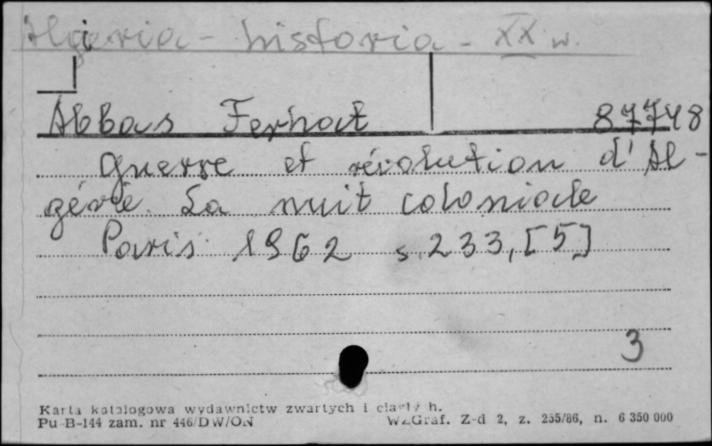 Algieria - historia - XX w.
Abbas Ferhat 87748
Guerre et révolution d'Al-
gérie. La nuit coloniale
Paris 1962 s. 233, [5]
3
Karta katalogowa wydawnictw zwartych i ciągłych.
Pu-B-144 zam. nr 446/DW/ON WZGraf. Z-d 2, z. 255/86, n. 6 350 000